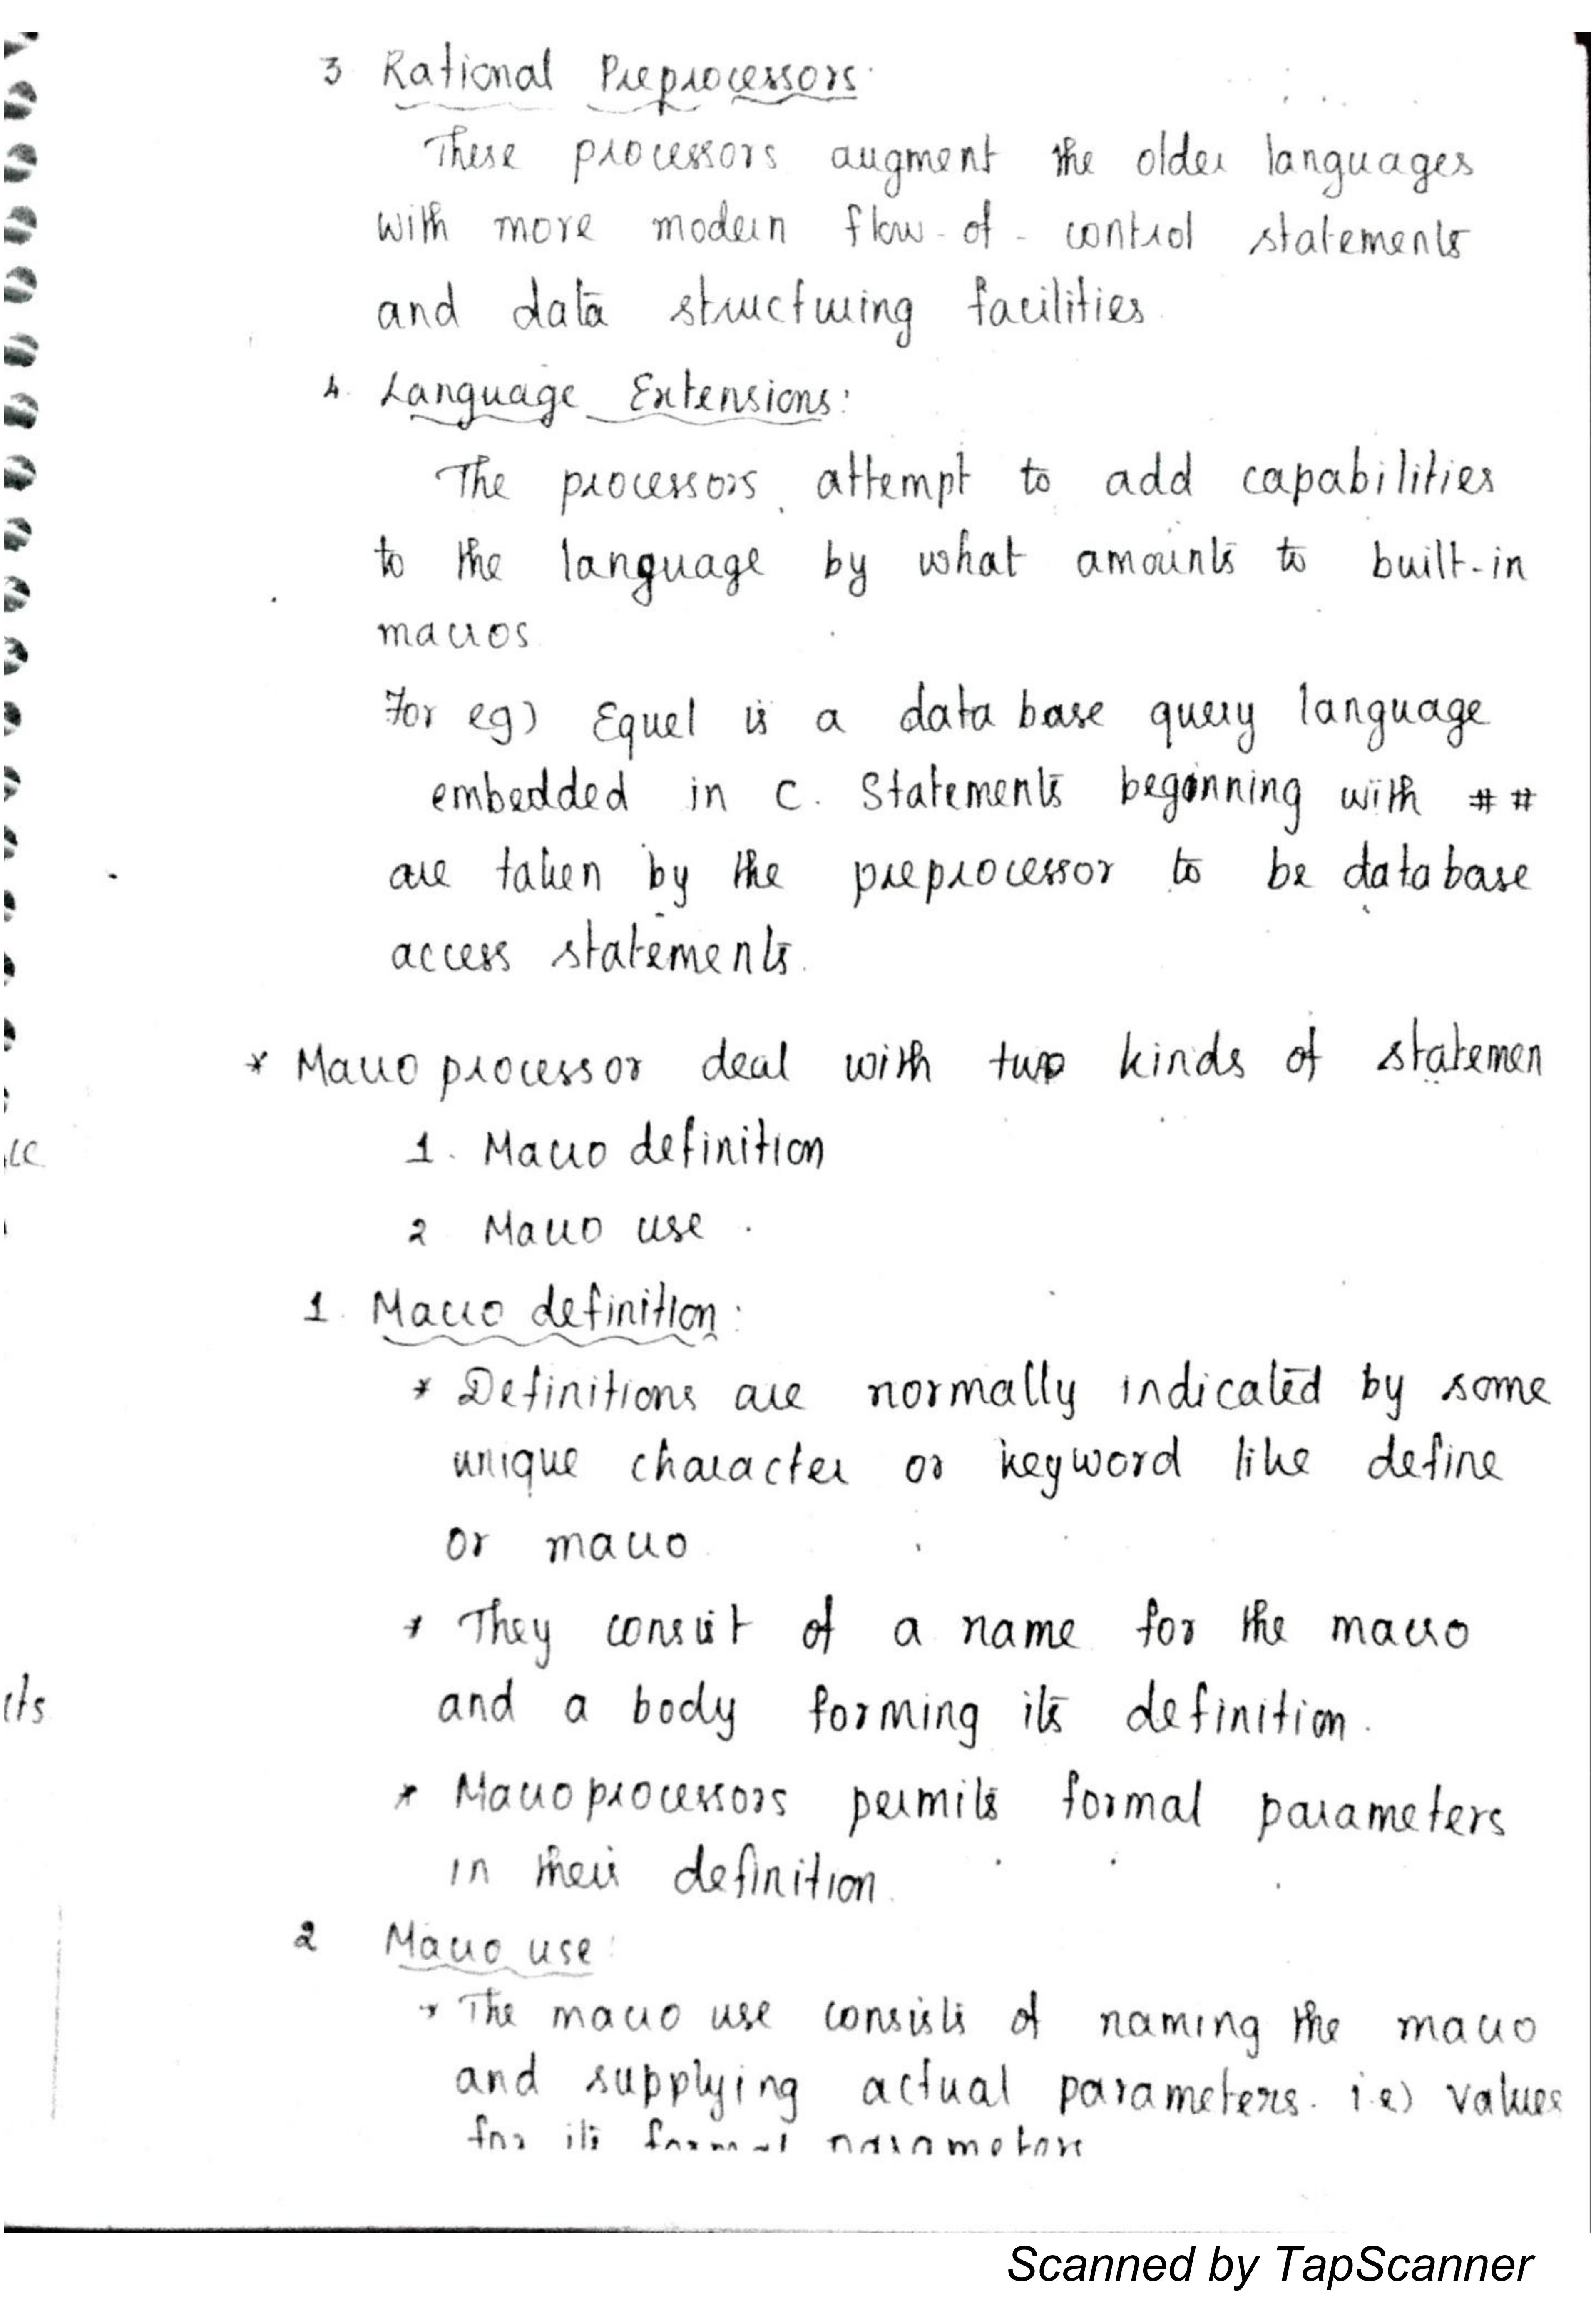 3 Rational Preprocessors.
These processors augment the older languages
with more modern flow-of-control statements
and data structuring facilities
4. Language Extensions:
The processors attempt to add capabilities
to the language by what amounts to built-in
macros
For eg) Equel is a data base query language
embedded in C. Statements beginning with ##
are taken by the preprocessor to be database
access statements.
* Macro processor deal with two kinds of statemen
1. Macro definition
2 Macro use.
1. Macro definition:
* Definitions are normally indicated by some
unique character or keyword like define
or macro
* They consist of a name for the macro
and a body forming its definition.
* Macroprocessors permits formal parameters
in their definition.
2 Macro use:
* The macro use consists of naming the macro
and supplying actual parameters. i.e) values
for its formal parameters
Scanned by TapScanner